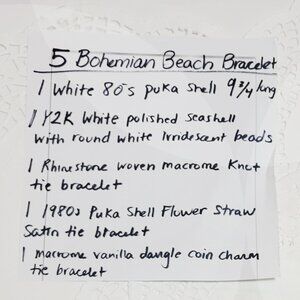 5 Bohemian Beach Bracelet
1 White 80's puka shell 9 3/4 long
1 Y2K White polished seashell
with round white Irridescent beads
1 Rhinestone woven macrome Knot
tie bracelet
1 1980s Puka Shell Flower Straw
Satin tie bracelet
1 macrome vanilla dangle coin charm
tie bracelet